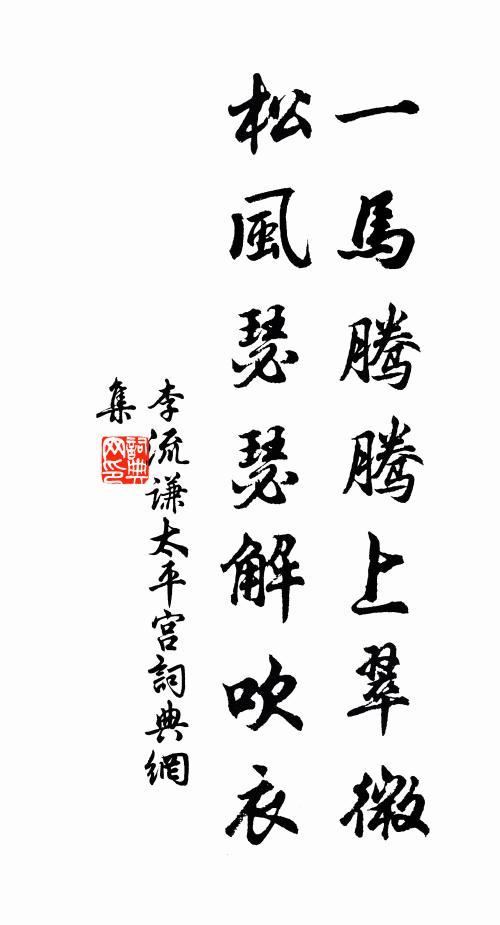 一馬騰騰上翠微
松風瑟瑟解吹衣
李流謙太平宮詞典網
集
詞典网印